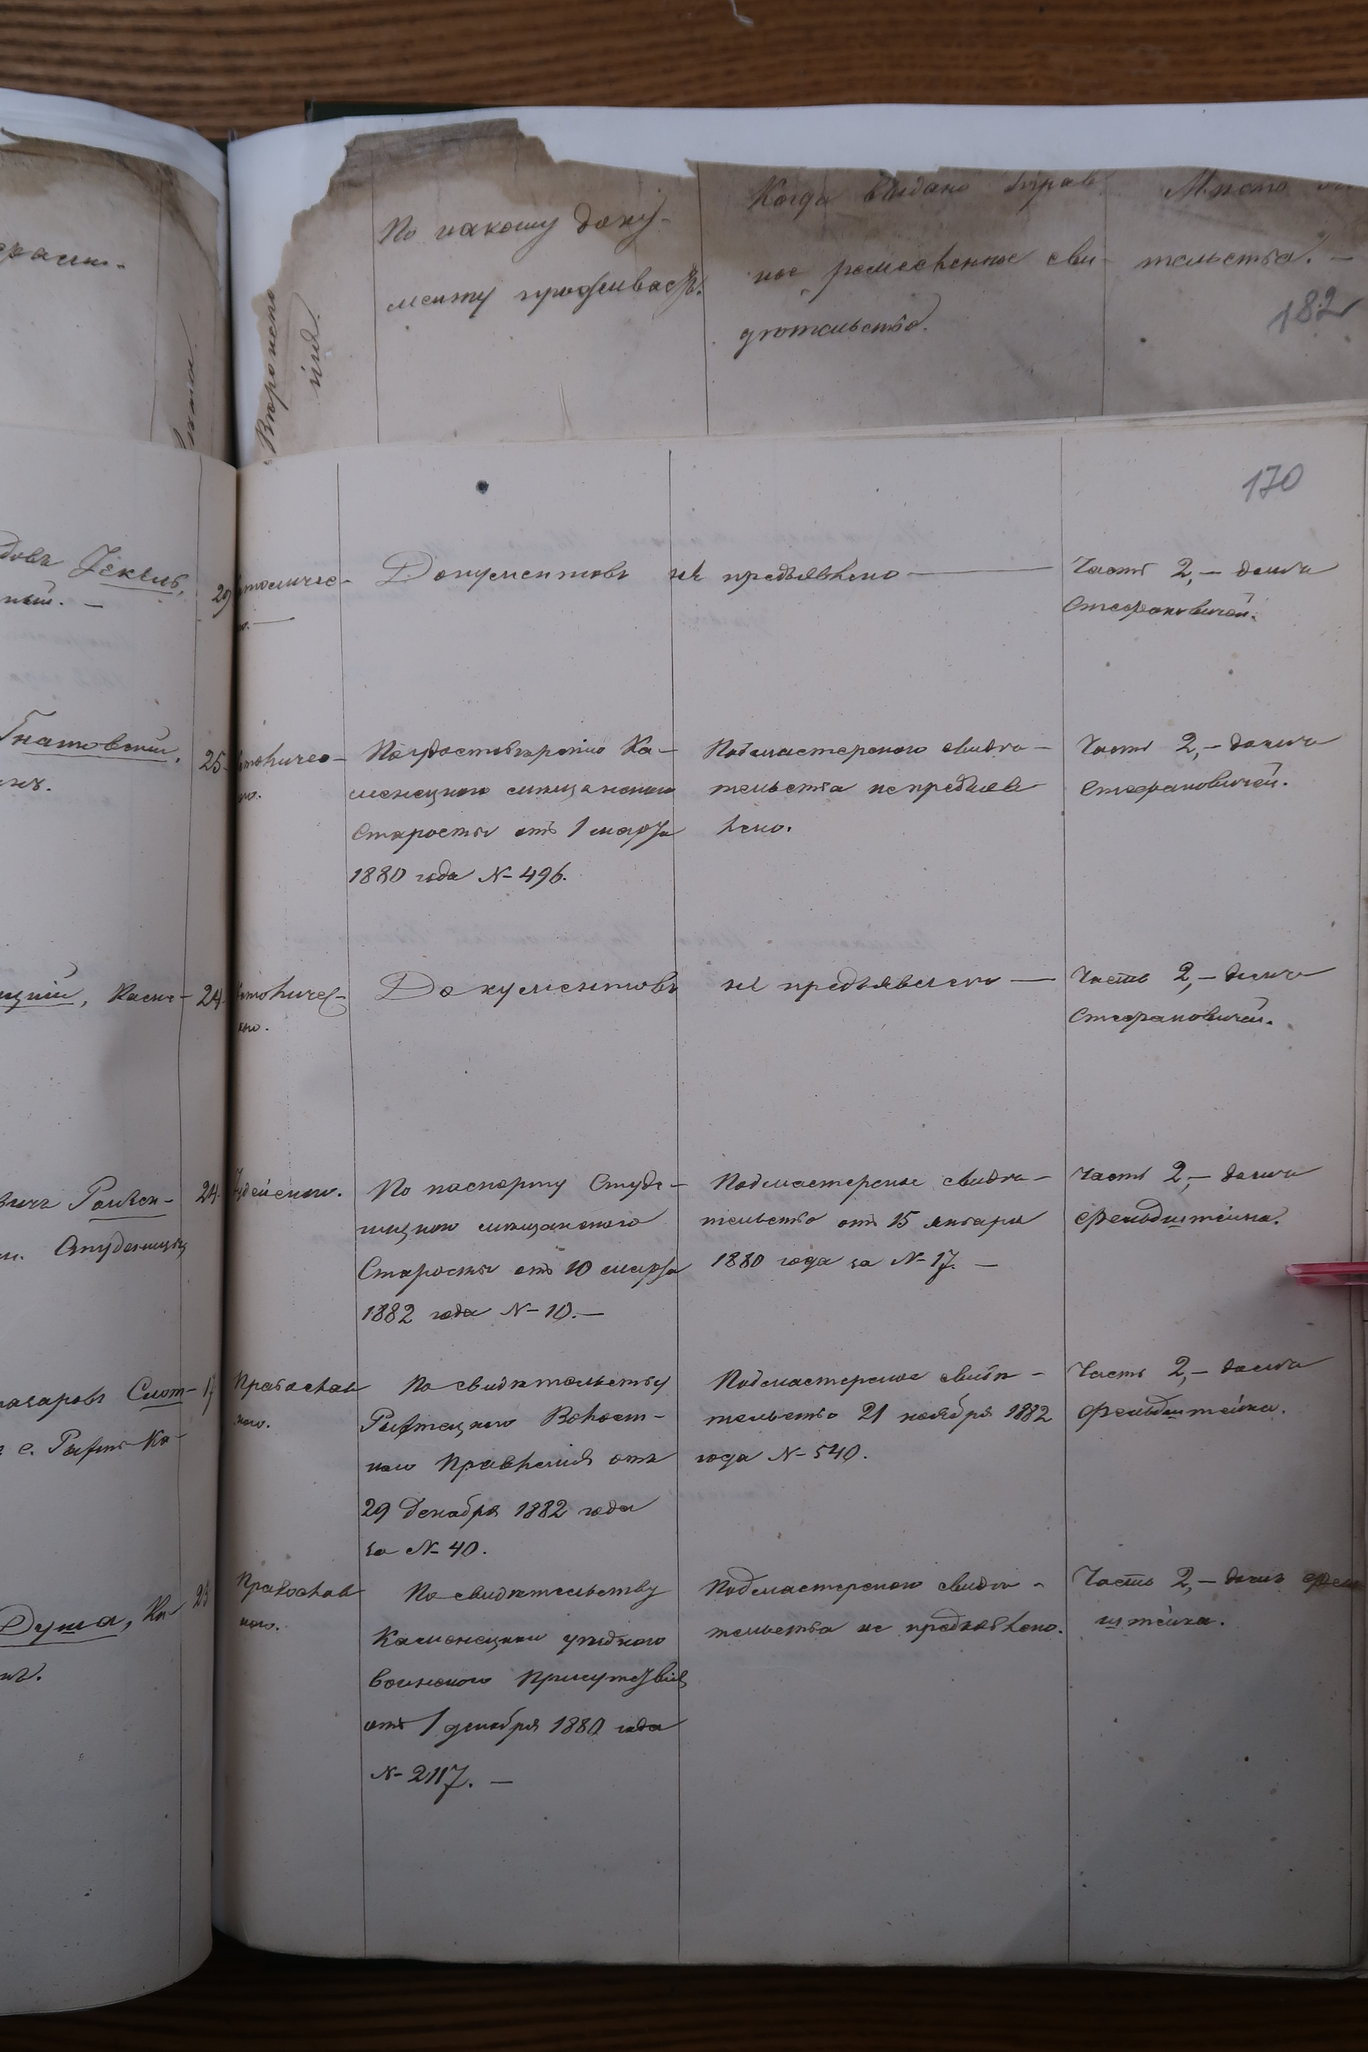 По какому доку-
менту проживаетъ.
Когда выдано управ
ное ремесленное сви-
дѣтельство.
Мѣсто
тельства. —
182
Вѣроиспо
170
Гекель,
29
Документовъ не предъявлено —
Часть 2, — домъ
Стефановичей.
Гнатовскій,
25
По удостовѣренію Ка-
менецкого мѣщанского
Старосты отъ 1 марта
1880 года № 496.
Подмастерского свидѣ-
тельства не предъяв
лено.
Часть 2, — домъ
Стефановичей.
24
Документовъ не предъявлено —
Часть 2, — домъ
Стефановичей.
24
Іудейского.
По паспорту Студе-
ницкого мѣщанского
Старосты отъ 10 марта
1882 года № 10. —
Подмастерское свидѣ-
тельство отъ 15 января
1880 года за № 17. —
Часть 2, — домъ
Фельдштейна.
Студеницы
17
Православ
ного.
По свидѣтельству
Волост-
ного Правленія отъ
29 Декабря 1882 года
за № 40.
Подмастерское свидѣ-
тельство 21 ноября 1882
года № 540.
Часть 2, — домъ
Фельдштейна.
Душа, Ка
23
Православ
ного.
По свидѣтельству
Каменецкого уѣздного
воинского Присутствія
отъ 1 декабря 1880 года
№ 2117. —
Подмастерского свидѣ-
тельства не предъявлено.
Часть 2, — домъ
штейна.